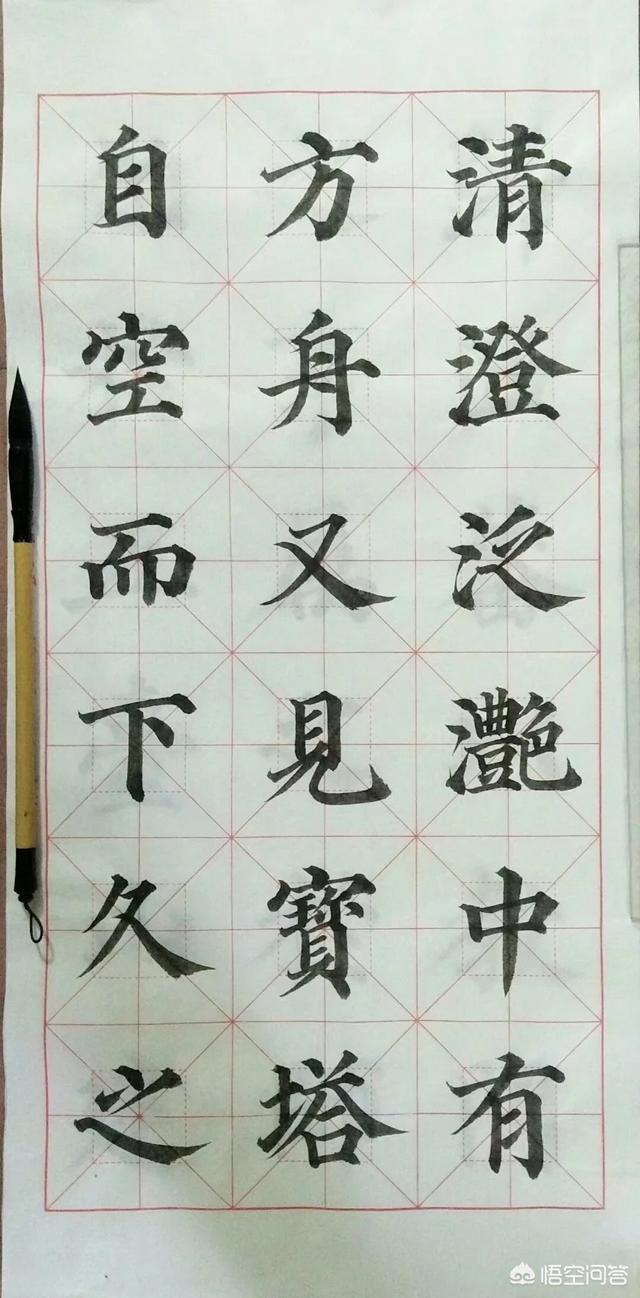 清澄泛灧中有
方舟又見寶塔
自空而下久之
悟空问答